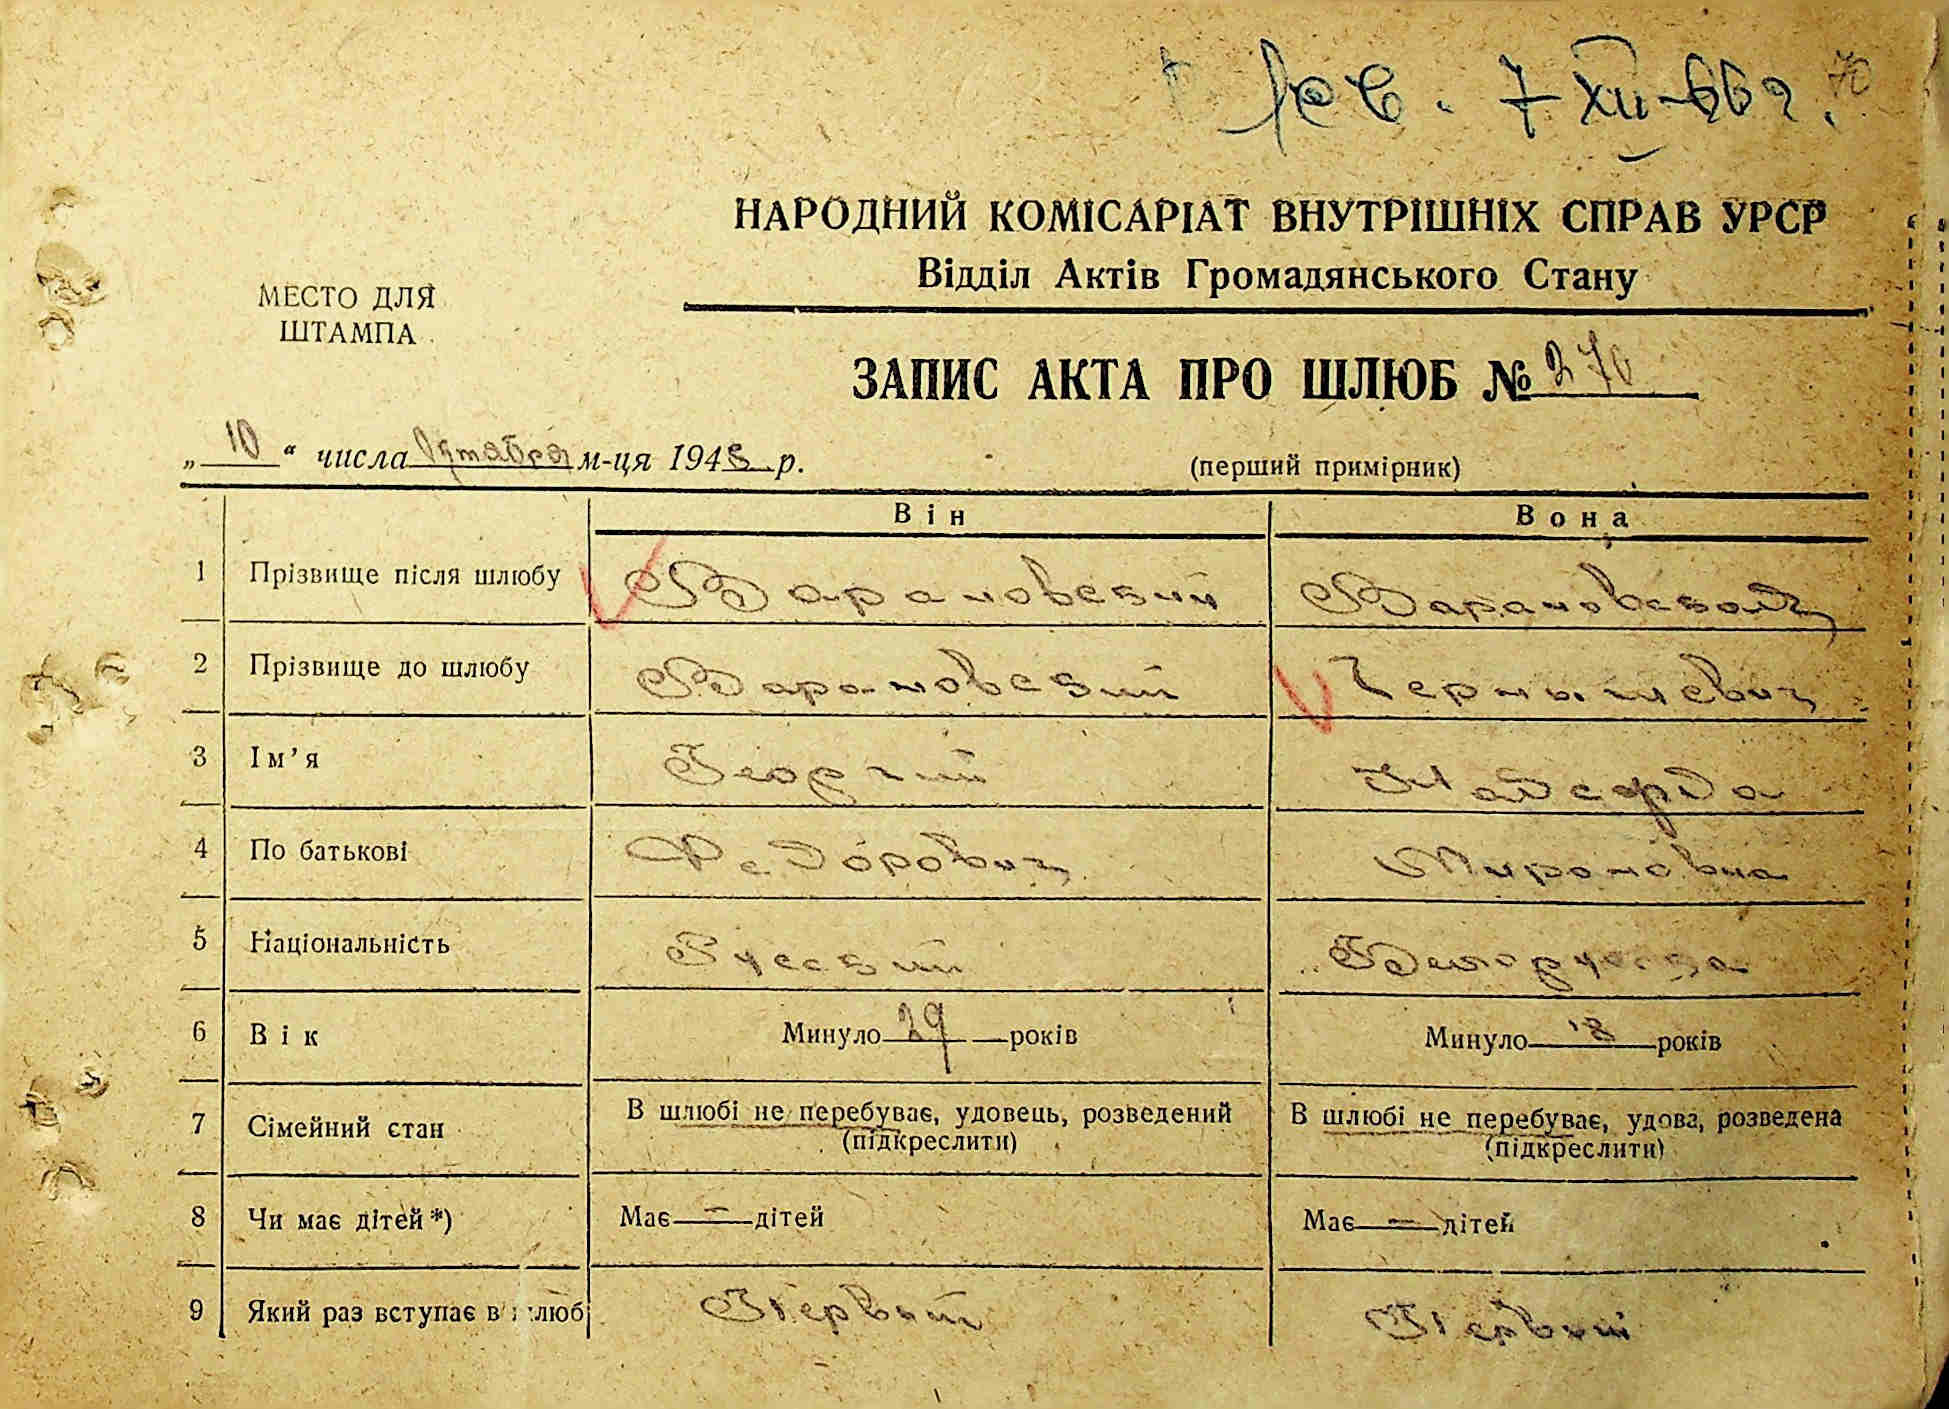 7 XII-66г.
70
НАРОДНИЙ КОМІСАРІАТ ВНУТРІШНІХ СПРАВ УРСР
Відділ Актів Громадянського Стану
МЕСТО ДЛЯ
ШТАМПА
ЗАПИС АКТА ПРО ШЛЮБ № 270
„ 10 “ числа Октября м-ця 1945 р.
(перший примірник)
Він Вона
1 Прізвище після шлюбу Варановский Варановская
2 Прізвище до шлюбу Варановский Чернышевич
3 Ім’я Георгий Надежда
4 По батькові Федорович Мироновна
5 Національність Русский Белорусска
6 Вік Минуло 29 — років Минуло 18 років
7 Сімейний стан В шлюбі не перебуває, удовець, розведений (підкреслити) В шлюбі не перебуває, удова, розведена (підкреслити)
8 Чи має дітей*) Має — дітей Має — дітей
9 Який раз вступає в шлюб Первый Первый